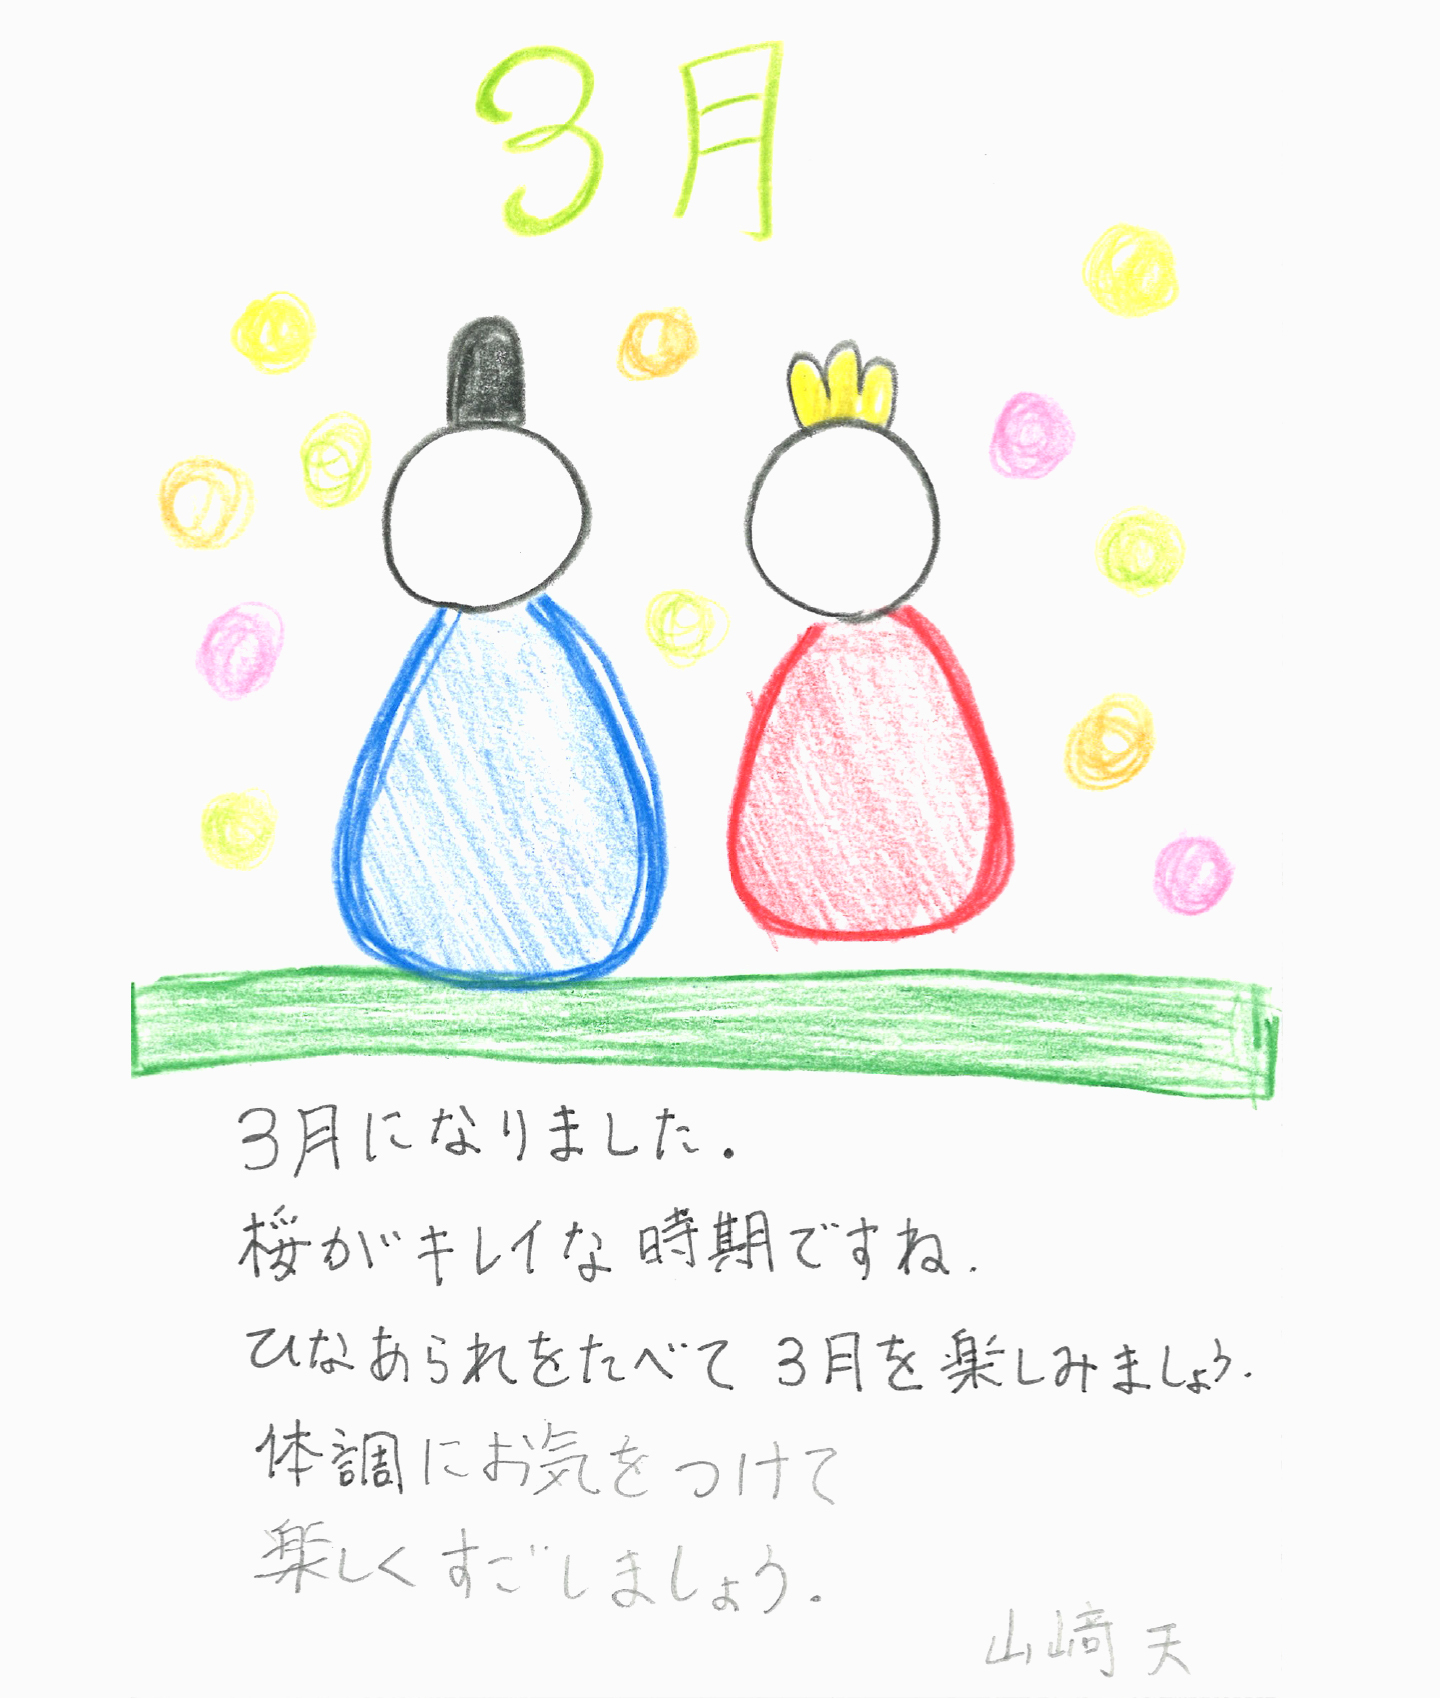 3月
3月になりました.
桜がキレイな時期ですね.
ひなあられをたべて 3月を楽しみましょう.
体調にお気をつけて
楽しくすごしましょう.
山﨑 天